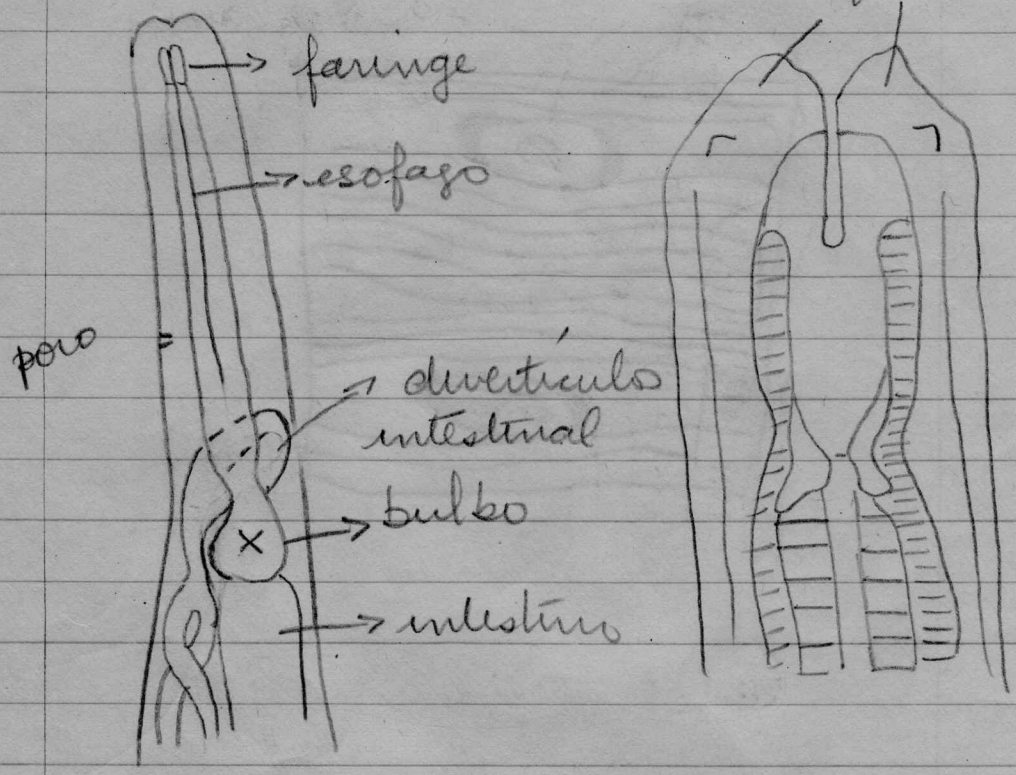 faringe
esofago
poro
divertículo
intestinal
bulbo
intestino